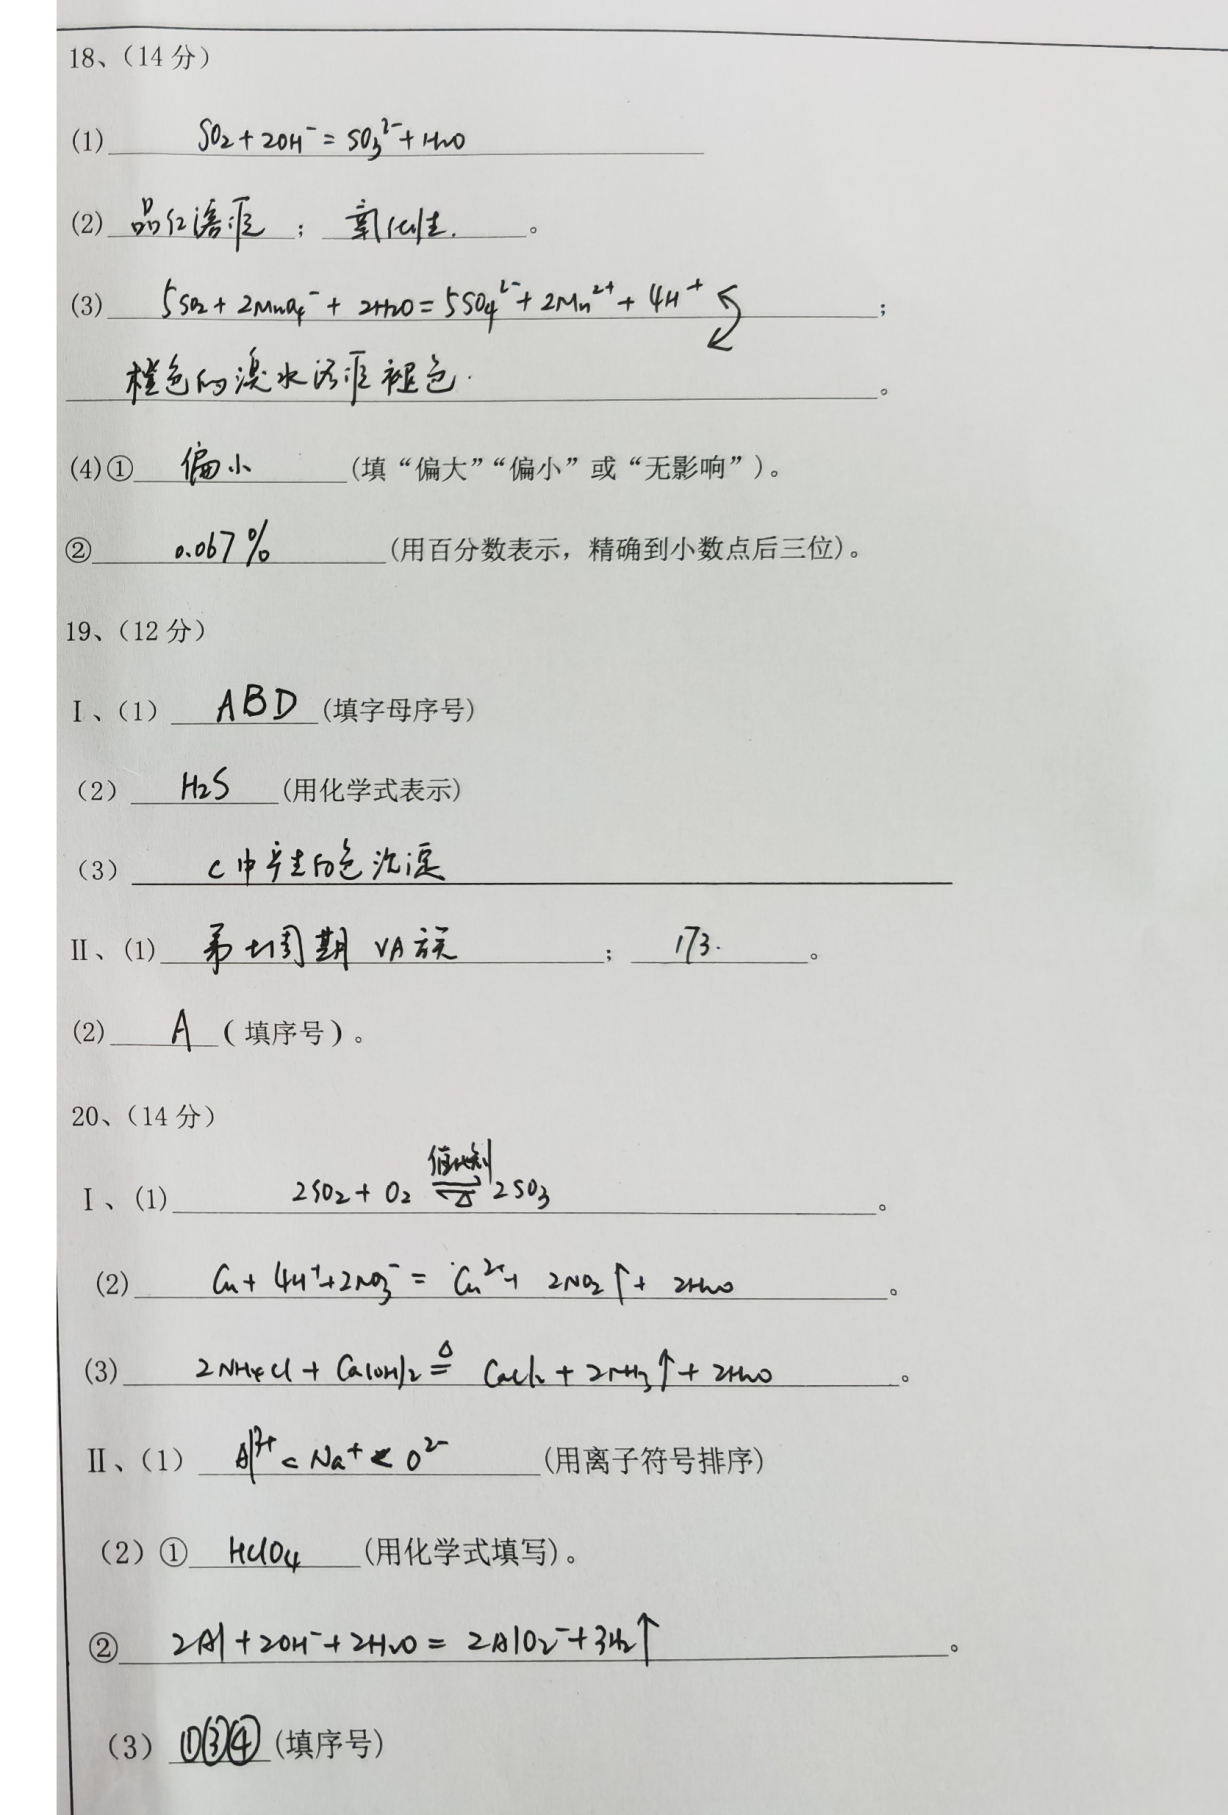 18、（14 分）
(1) SO₂ + 2OH⁻ = SO₃²⁻ + H₂O
(2) 品红溶液 ； 氧化性. 。
(3) 5SO₂ + 2MnO₄⁻ + 2H₂O = 5SO₄²⁻ + 2Mn²⁺ + 4H⁺ ；
橙色的溴水溶液褪色. 。
(4)① 偏小 (填“偏大”“偏小”或“无影响”)。
② 0.067% (用百分数表示，精确到小数点后三位)。
19、（12 分）
Ⅰ、（1） ABD (填字母序号)
（2） H₂S (用化学式表示)
（3） C中产生白色沉淀
Ⅱ、(1) 第七周期 VA 族 ； 173. 。
(2) A （填序号）。
20、（14 分）
Ⅰ、(1) 2SO₂ + O₂ ⇌ 催化剂 △ 2SO₃ 。
(2) Cu + 4H⁺ + 2NO₃⁻ = Cu²⁺ + 2NO₂↑ + 2H₂O 。
(3) 2NH₄Cl + Ca(OH)₂ ≜ CaCl₂ + 2NH₃↑ + 2H₂O 。
Ⅱ、（1） Al³⁺ < Na⁺ < O²⁻ (用离子符号排序)
（2）① HClO₄ (用化学式填写)。
② 2Al + 2OH⁻ + 2H₂O = 2AlO₂⁻ + 3H₂↑ 。
（3） ①③④ (填序号)